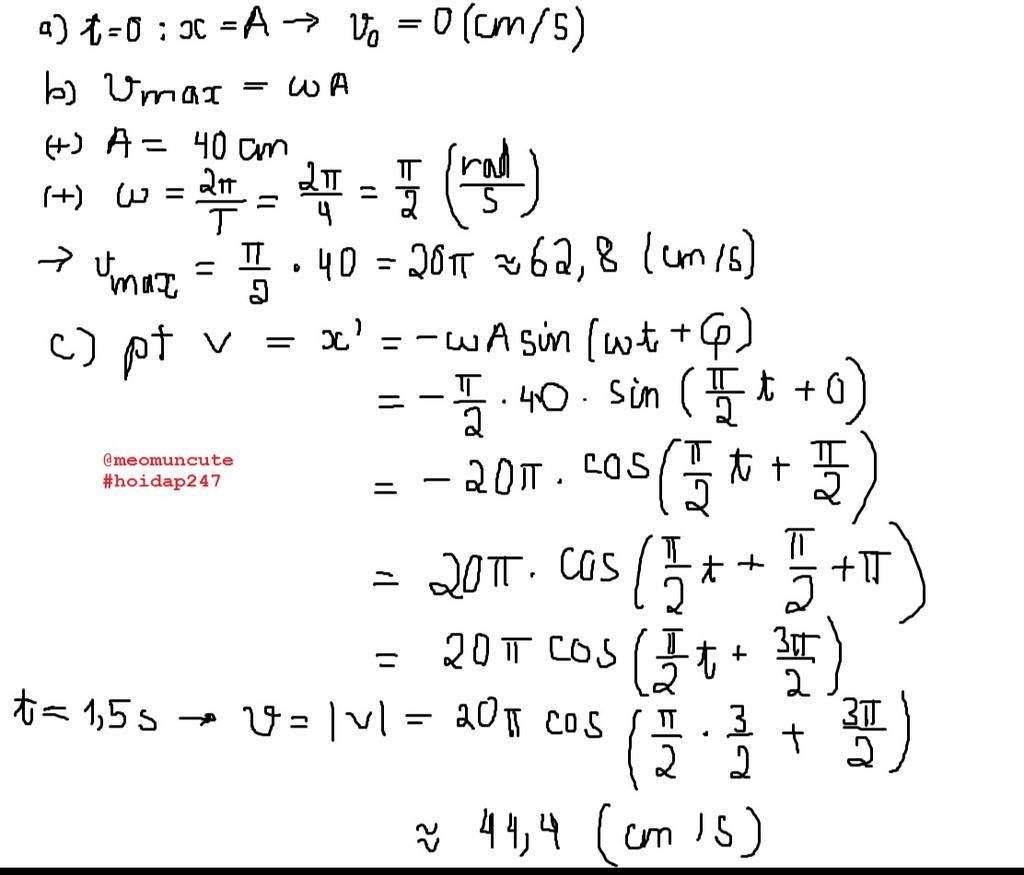 a) t=0 : x = A → v₀ = 0 (cm/s)
b) vmax = ωA
(+) A = 40 cm
(+) ω = 2π/T = 2π/4 = π/2 (rad/s)
→ vmax = π/2 . 40 = 20π ≈ 62,8 (cm/s)
c) pt v = x' = -ωA sin (ωt + φ)
= - π/2 . 40 . sin (π/2 t + 0)
= - 20π . cos (π/2 t + π/2)
@meomuncute
#hoidap247
= 20π . cos (π/2 t + π/2 + π)
= 20π cos (π/2 t + 3π/2)
t = 1,5 s → v = |v| = 20π cos (π/2 . 3/2 + 3π/2)
≈ 44,4 (cm/s)